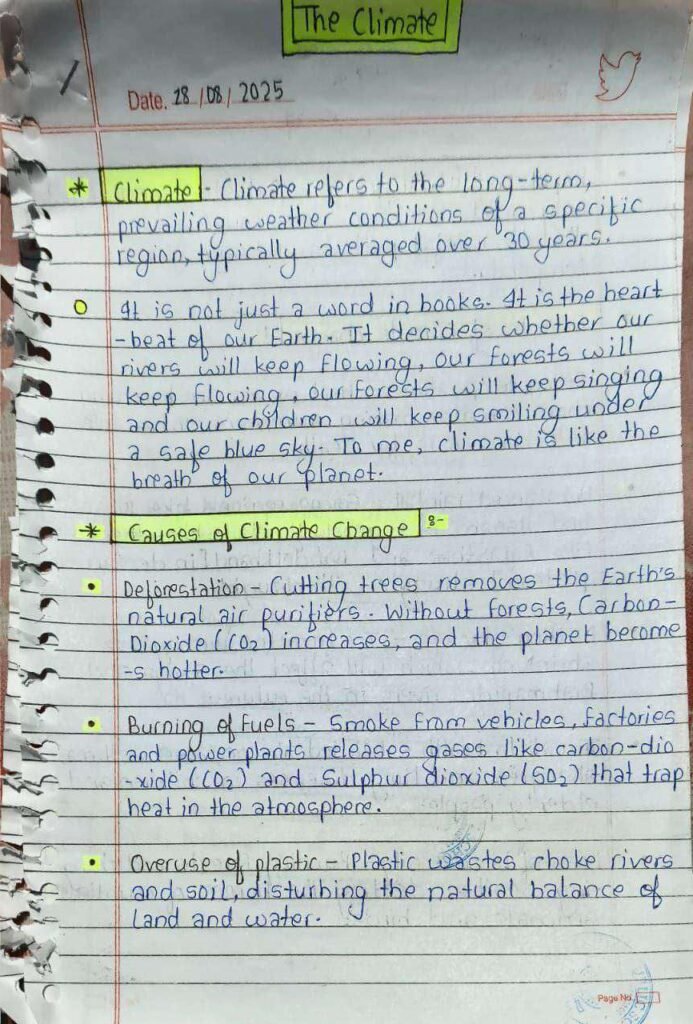 The Climate
Date. 28/08/2025
* Climate - Climate refers to the long-term,
prevailing weather conditions of a specific
region, typically averaged over 30 years.
It is not just a word in books. It is the heart
-beat of our Earth. It decides whether our
rivers will keep flowing, our forests will
keep flowing, our forests will keep singing
and our children will keep smiling under
a safe blue sky. To me, climate is like the
breath of our planet.
* Causes of Climate Change :-
• Deforestation - Cutting trees removes the Earth's
natural air purifiers. Without forests, Carbon-
Dioxide (CO2) increases, and the planet become
-s hotter.
• Burning of Fuels - Smoke from vehicles, factories
and power plants releases gases like carbon-dio
-xide (CO2) and Sulphur dioxide (SO2) that trap
heat in the atmosphere.
• Overuse of plastic - Plastic wastes choke rivers
and soil, disturbing the natural balance of
land and water.
Page No.